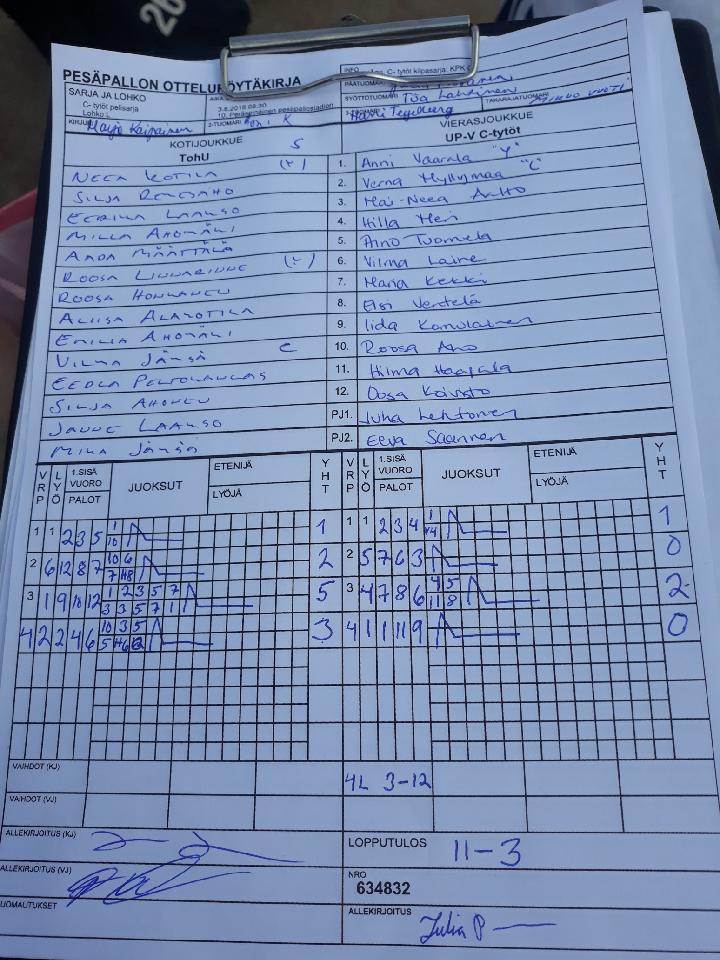 26
PESÄPALLON OTTELUPÖYTÄKIRJA
INFO
C- tytöt kilpasarja: KPK
SARJA JA LOHKO
C- tytöt pelisarja
Lohko L
3.8.2018 08:30
10. Peräseinäjoen pesäpallostadion
PÄÄTUOMARI
SYÖTTÖTUOMARI
TAKARAJATUOMARI
KIRJURI
2-TUOMARI
KOTIJOUKKUE
VIERASJOUKKUE
TohU
UP-V C-tytöt
NEEA KOTILA
1. Anni Vaarala "Y"
2. Verna Myllymaa "C"
EERIKA LAAKSO
3. Mai-Neea Aalto
MILLA AHOMÄKI
4. Hilla Heri
AADA MÄÄTTÄLÄ
5. Aino Tuomela
6. Vilma Laine
ROOSA HONKANEN
7. Maria Kekki
ALIISA ALAKOTILA
8. Elsi Ventelä
EMILIA AHOMÄKI
9. Iida Kamulainen
VILMA JÄMSÄ C
10. Roosa Aho
EEDLA PELTOKANGAS
11. Hilma Haapala
SILJA AHONEN
12. Oosa Koivisto
JANNE LAAKSO
PJ1. Juha Lehtonen
MIKA JÄMSÄ
PJ2. Eeva Saarinen
VRP LYÖ 1.SISÄ VUORO PALOT JUOKSUT ETENIJÄ LYÖJÄ YHT
VRP LYÖ 1.SISÄ VUORO PALOT JUOKSUT ETENIJÄ LYÖJÄ YHT
1 1 2 3 5 1 10 1
1 1 2 3 4 1
2 6 12 8 7 10 6 2
2 5 7 6 3 0
3 1 9 10 12 1 2 3 5 7 3 3 5 7 1 5
3 4 7 8 6 4 5 11 8 2
4 2 2 4 6 10 3 5 3
4 1 1 11 9 0
VAIHDOT (KJ)
4L 3-12
VAIHDOT (VJ)
ALLEKIRJOITUS (KJ)
LOPPUTULOS 11-3
ALLEKIRJOITUS (VJ)
NRO
634832
HUOMAUTUKSET
ALLEKIRJOITUS Julia P